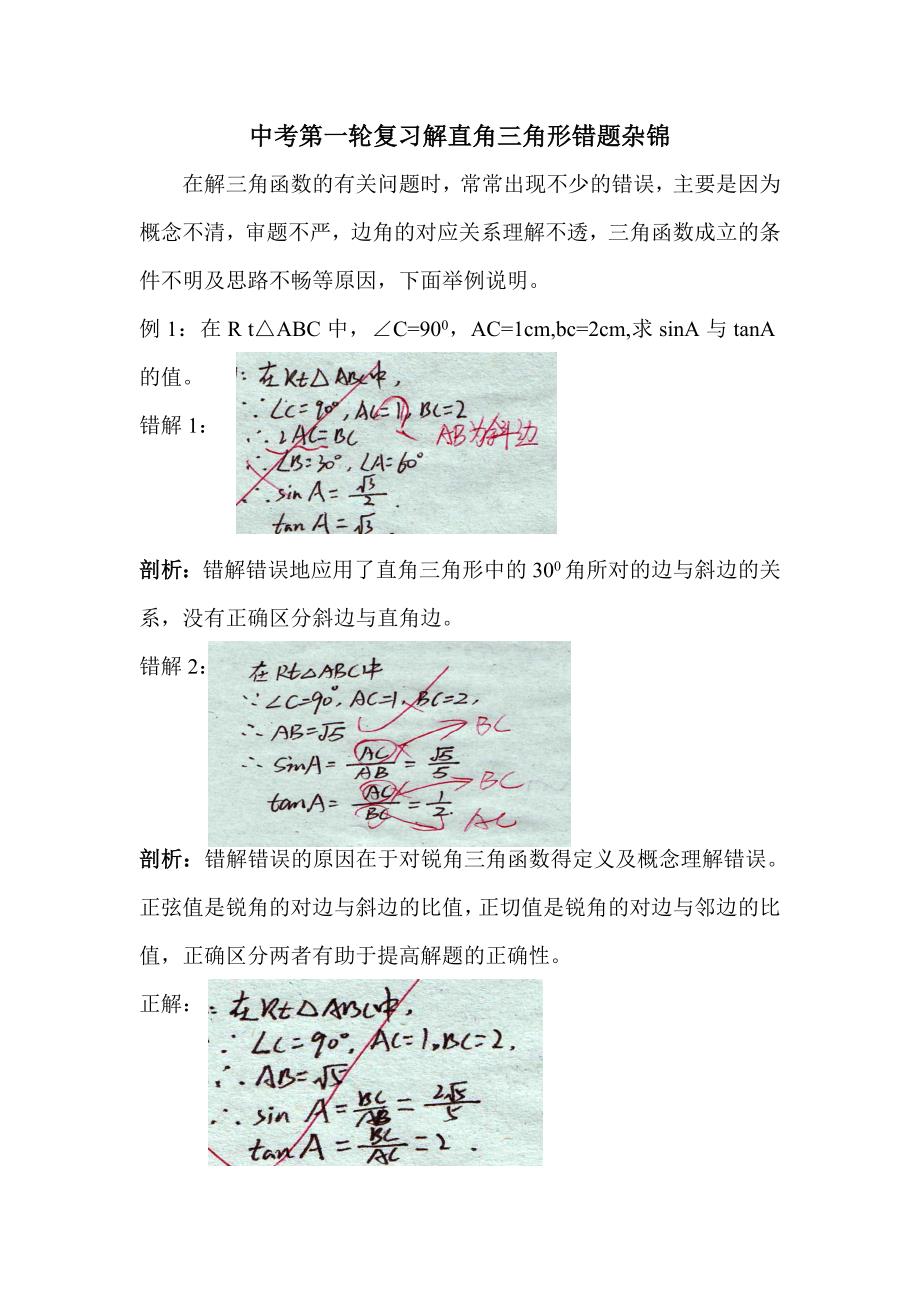 中考第一轮复习解直角三角形错题杂锦
在解三角函数的有关问题时，常常出现不少的错误，主要是因为
概念不清，审题不严，边角的对应关系理解不透，三角函数成立的条
件不明及思路不畅等原因，下面举例说明。
例 1：在 R t△ABC 中，∠C=90⁰，AC=1cm,bc=2cm,求 sinA 与 tanA
的值。
错解 1：
: 在Rt△ABC中，
∵∠C=90°, AC=1, BC=2
∴2AC=BC
AB为斜边
∴∠B=30°, ∠A=60°
∴sin A=√3/2.
tan A=√3.
剖析：错解错误地应用了直角三角形中的 30⁰ 角所对的边与斜边的关
系，没有正确区分斜边与直角边。
错解 2：
在Rt△ABC中
∵∠C=90°, AC=1, BC=2,
∴AB=√5
BC
∴sinA=AC/AB=√5/5
BC
tanA=AC/BC=1/2.
AC
剖析：错解错误的原因在于对锐角三角函数得定义及概念理解错误。
正弦值是锐角的对边与斜边的比值，正切值是锐角的对边与邻边的比
值，正确区分两者有助于提高解题的正确性。
正解：
: 在Rt△ABC中，
∵∠C=90°, AC=1, BC=2.
∴AB=√5
∴sin A=BC/AB=2√5/5
tan A=BC/AC=2.